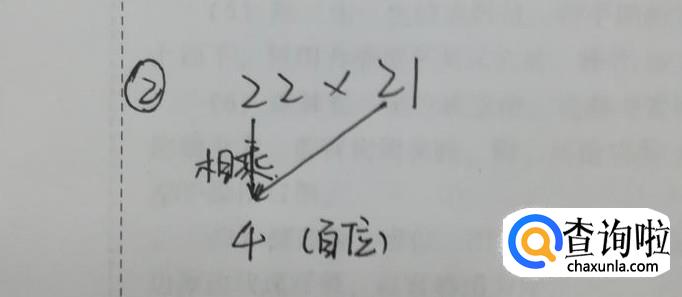 ② 22×21
相乘
4 (百位)
查询啦
chaxunla.com